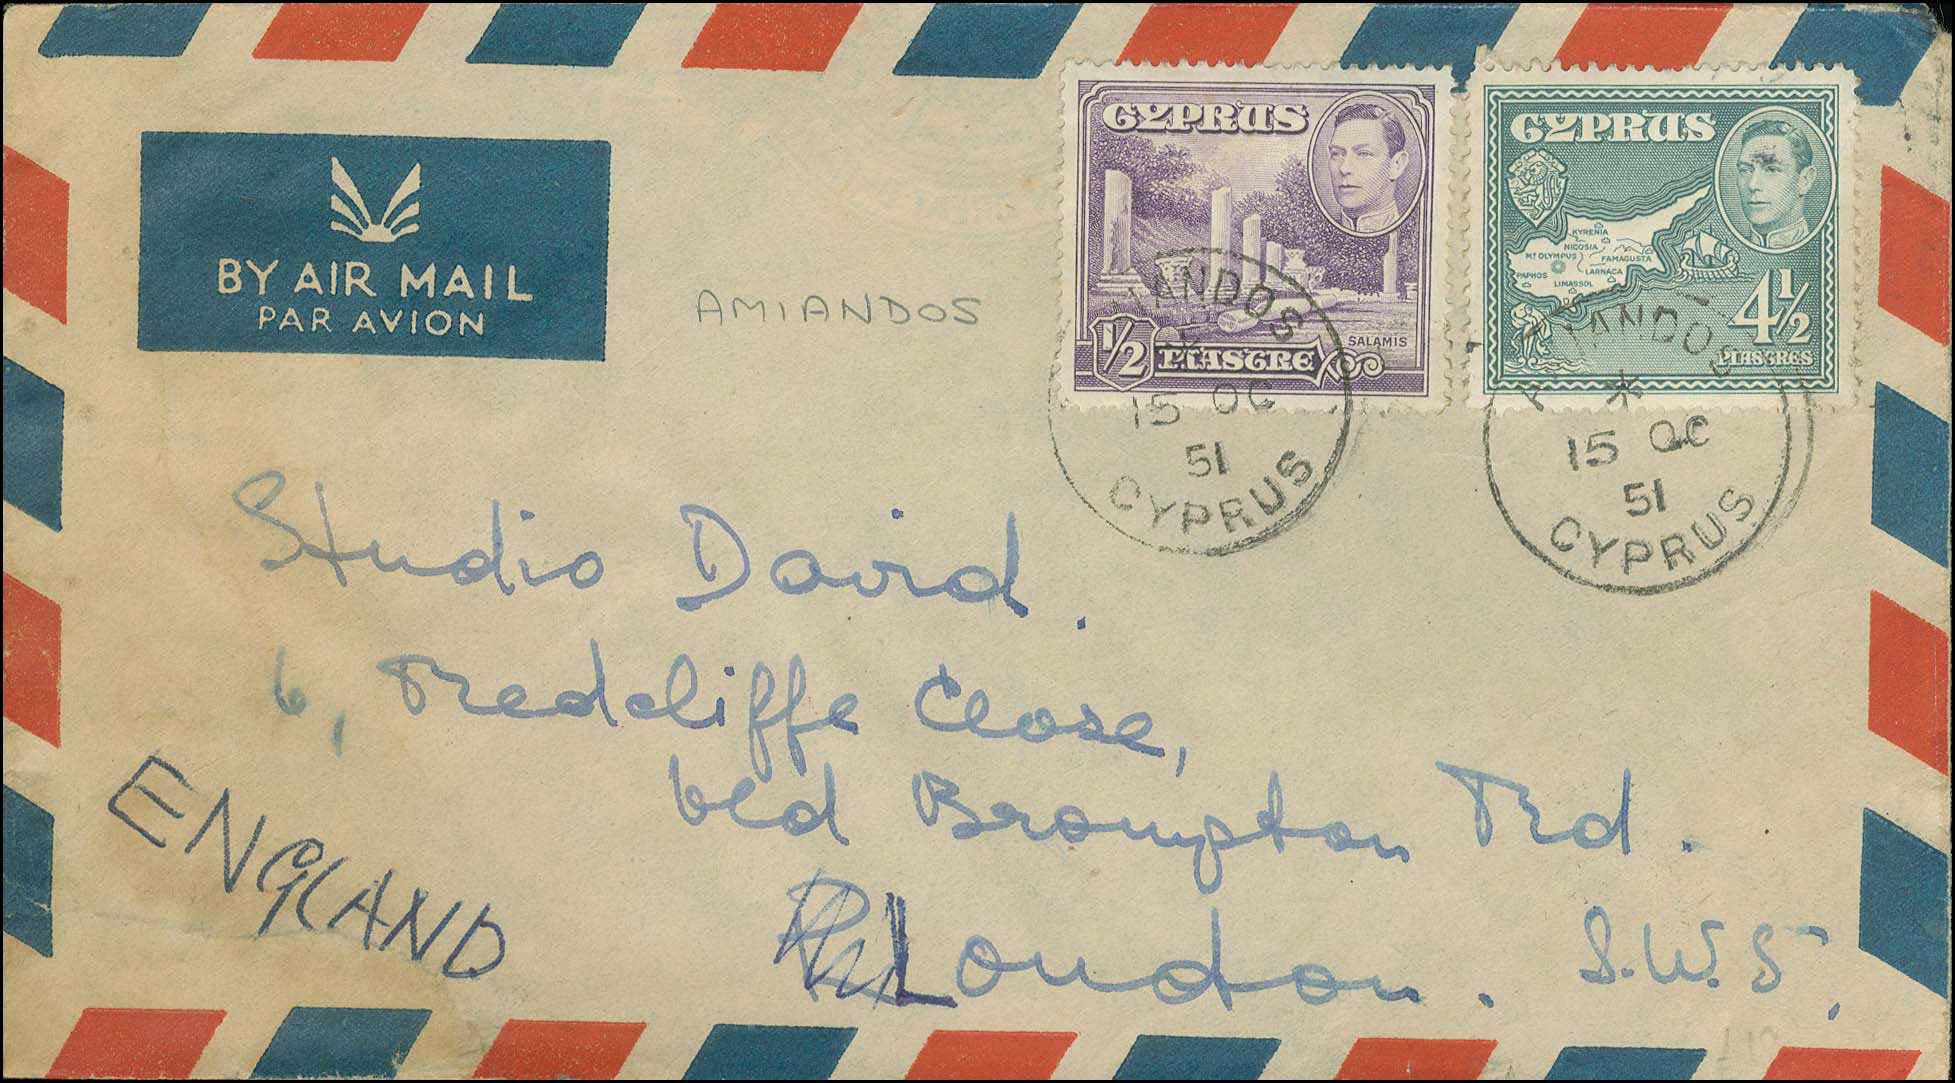 BY AIR MAIL
PAR AVION
AMIANDOS
CYPRUS
SALAMIS
1/2 PIASTRE
CYPRUS
KYRENIA
NICOSIA
MT OLYMPUS
FAMAGUSTA
PAPHOS
LARNACA
LIMASSOL
4 1/2
PIASTRES
AMIANDOS
15 OC
51
CYPRUS
AMIANDOS
15 OC
51
CYPRUS
Studio David.
6, Redcliffe Close,
Old Brompton Rd.
London. S.W.5,
ENGLAND